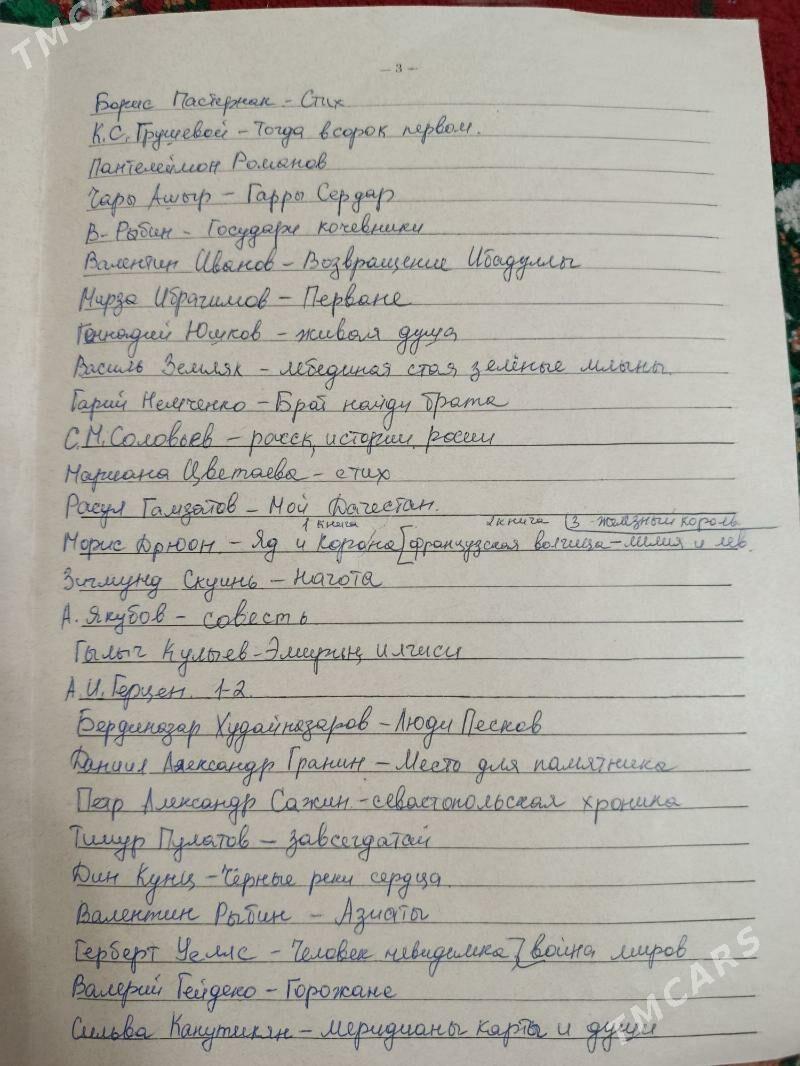 TMCARS
– 3 –
Борис Пастернак – Стих
К.С. Грушевой – Тогда в сорок первом.
Пантелеймон Романов
Чары Ашыр – Гарры Сердар
В. Рыбин – Государи кочевники
Валентин Иванов – Возвращение Ибадуллы
Мирза Ибрагимов – Перване
Геннадий Юшков – живая душа
Василь Земляк – лебединая стая зелёные млыны.
Гарий Немченко – Брат найди брата
С.М. Соловьев – расск, истории росии
Мариана Цветаева – стих
Расул Гамзатов – Мой Дагестан.
1 книга 2 книга (3 железный король
Морис Дрюон – Яд и Корона [французская волчица – лилия и лев.
Зигмунд Скуинь – Нагота
А. Якубов – совесть
Гылыч Кулыев – Эмириң илчиси
А.И. Герцен 1-2.
Бердиназар Худайназаров – Люди Песков
Даниил Александр Гранин – Место для памятника
Петр Александр Сажин – севастопольская хроника
Тимур Пулатов – завсегдатай
Дин Кунц – Чёрные реки сердца.
Валентин Рыбин – Азиаты
Герберт Уеллс – Человек невидимка [война миров
Валерий Гейдеко – Горожане
Сильва Капутикян – меридианы карты и души
TMCARS